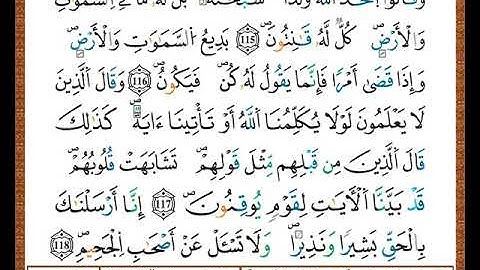 وَقَالُوا اتَّخَذَ اللَّهُ وَلَدًا سُبْحَٰنَهُ بَل لَّهُ مَا فِي السَّمَٰوَٰتِ
وَالْأَرْضِ كُلٌّ لَّهُ قَٰنِتُونَ 115 بَدِيعُ السَّمَٰوَٰتِ وَالْأَرْضِ
وَإِذَا قَضَىٰ أَمْرًا فَإِنَّمَا يَقُولُ لَهُ كُن فَيَكُونُ 116 وَقَالَ الَّذِينَ
لَا يَعْلَمُونَ لَوْلَا يُكَلِّمُنَا اللَّهُ أَوْ تَأْتِينَا ءَايَةٌ كَذَٰلِكَ
قَالَ الَّذِينَ مِن قَبْلِهِم مِّثْلَ قَوْلِهِمْ تَشَٰبَهَتْ قُلُوبُهُمْ
قَدْ بَيَّنَّا الْآيَٰتِ لِقَوْمٍ يُوقِنُونَ 117 إِنَّا أَرْسَلْنَٰكَ
بِالْحَقِّ بَشِيرًا وَنَذِيرًا وَلَا تَسْـَٔلْ عَنْ أَصْحَٰبِ الْجَحِيمِ 118